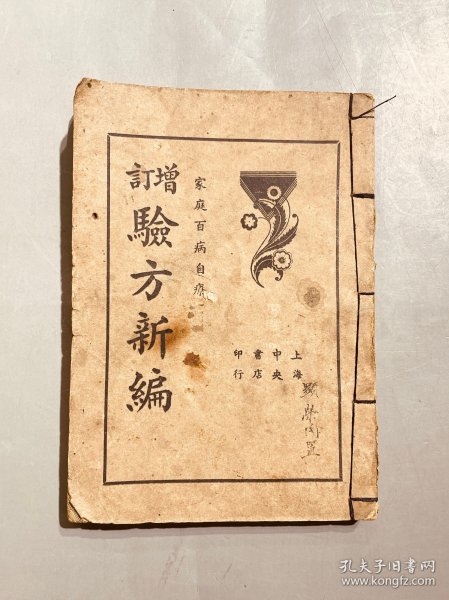 增訂
驗方新編
家庭百病自療
上海
中央
書店
印行
孔夫子旧书网
www.kongfz.com